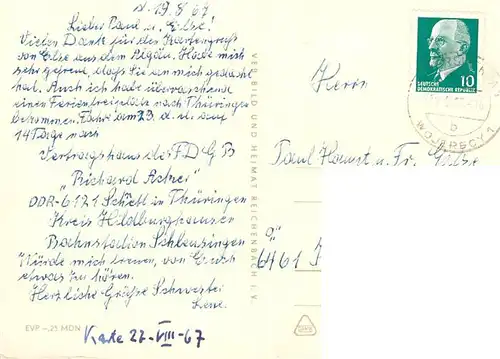 d. 19.8.67
Lieber Paul u. Else!
Vielen Dank für den Kartengruß
von Else aus dem Algäu. Habe mich
sehr gefreut, dass Sie an mich gedacht
hat. Auch ich habe überraschend
einen Ferienfreiplatz nach Thüringen
bekommen. Fahre am 23. d. M. auf
14 Tage nach
Vertragshaus des FDGB
"Richard Acher"
DDR-6171 in Thüringen
Kreis Hildburghausen
Bahnstation Schleusingen
Würde mich freuen, von Euch
etwas zu hören.
Herzliche Grüße Schwester
Lene.
EVP -,25 MDN
Karte 27-VIII-67
VEB BILD UND HEIMAT REICHENBACH I. V.
Herrn
Paul u. Fr. Else
6461
10
DEUTSCHE
DEMOKRATISCHE REPUBLIK
b